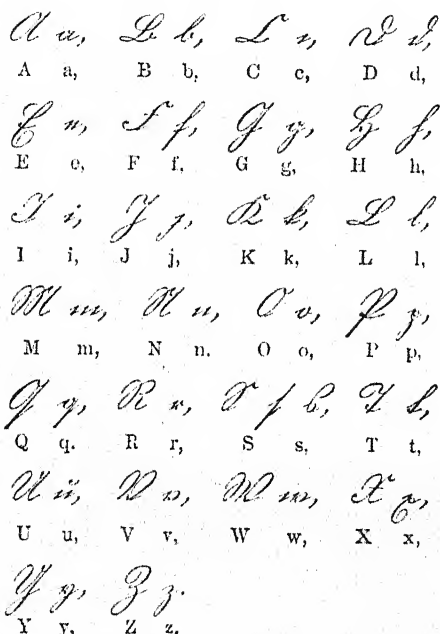 A a, B b, C c, D d,
A a, B b, C c, D d,
E e, F f, G g, H h,
E e, F f, G g, H h,
I i, J j, K k, L l,
I i, J j, K k, L l,
M m, N n, O o, P p,
M m, N n. O o, P p,
Q q, R r, S ſ s, T t,
Q q. R r, S s, T t,
U u, V v, W w, X x,
U u, V v, W w, X x,
Y y, Z z.
Y y, Z z.